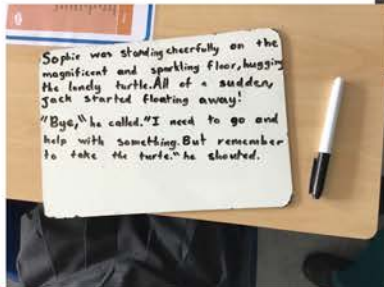 Sophie was standing cheerfully on the
magnificent and sparkling floor, hugging
the lonely turtle. All of a sudden,
Jack started floating away!
"Bye," he called. "I need to go and
help with something. But remember
to take the turte." he shouted.